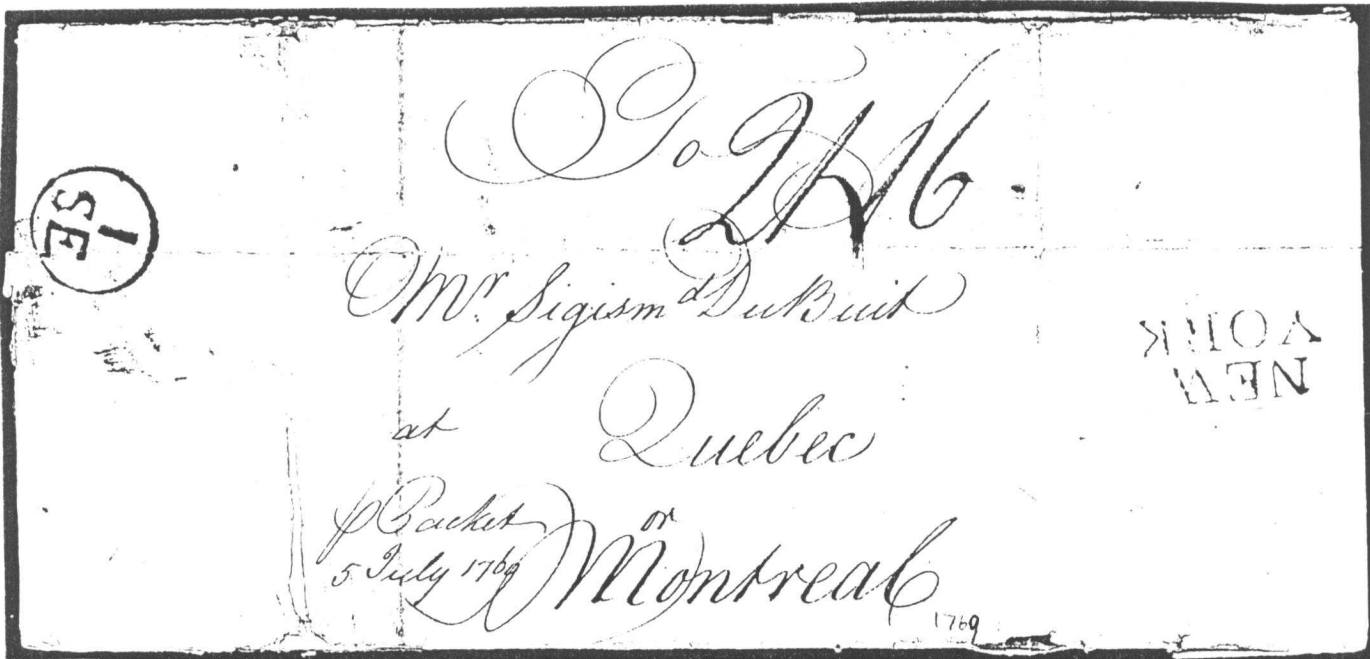 To
2N16
1
SE
Mr. Sigismd DuBuit
NEW
YORK
at Quebec
p Packet
5 July 1769
or
Montreal
1769